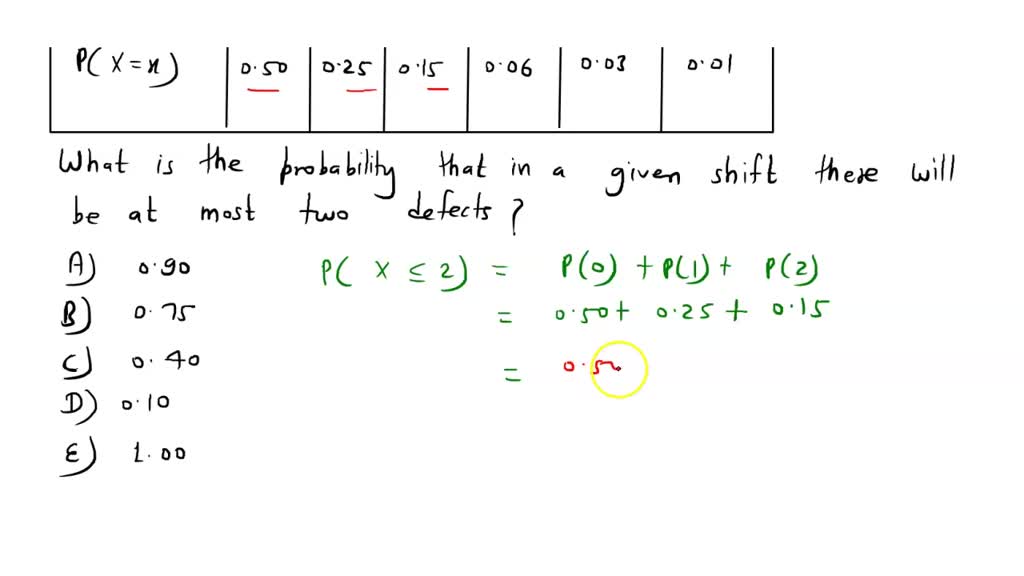 P( X = x) 0.50 0.25 0.15 0.06 0.03 0.01
What is the probability that in a given shift these will
be at most two defects?
A) 0.90
P( X ≤ 2) = P(0) + P(1) + P(2)
B) 0.75
= 0.50 + 0.25 + 0.15
C) 0.40
= 0.5
D) 0.10
E) 1.00